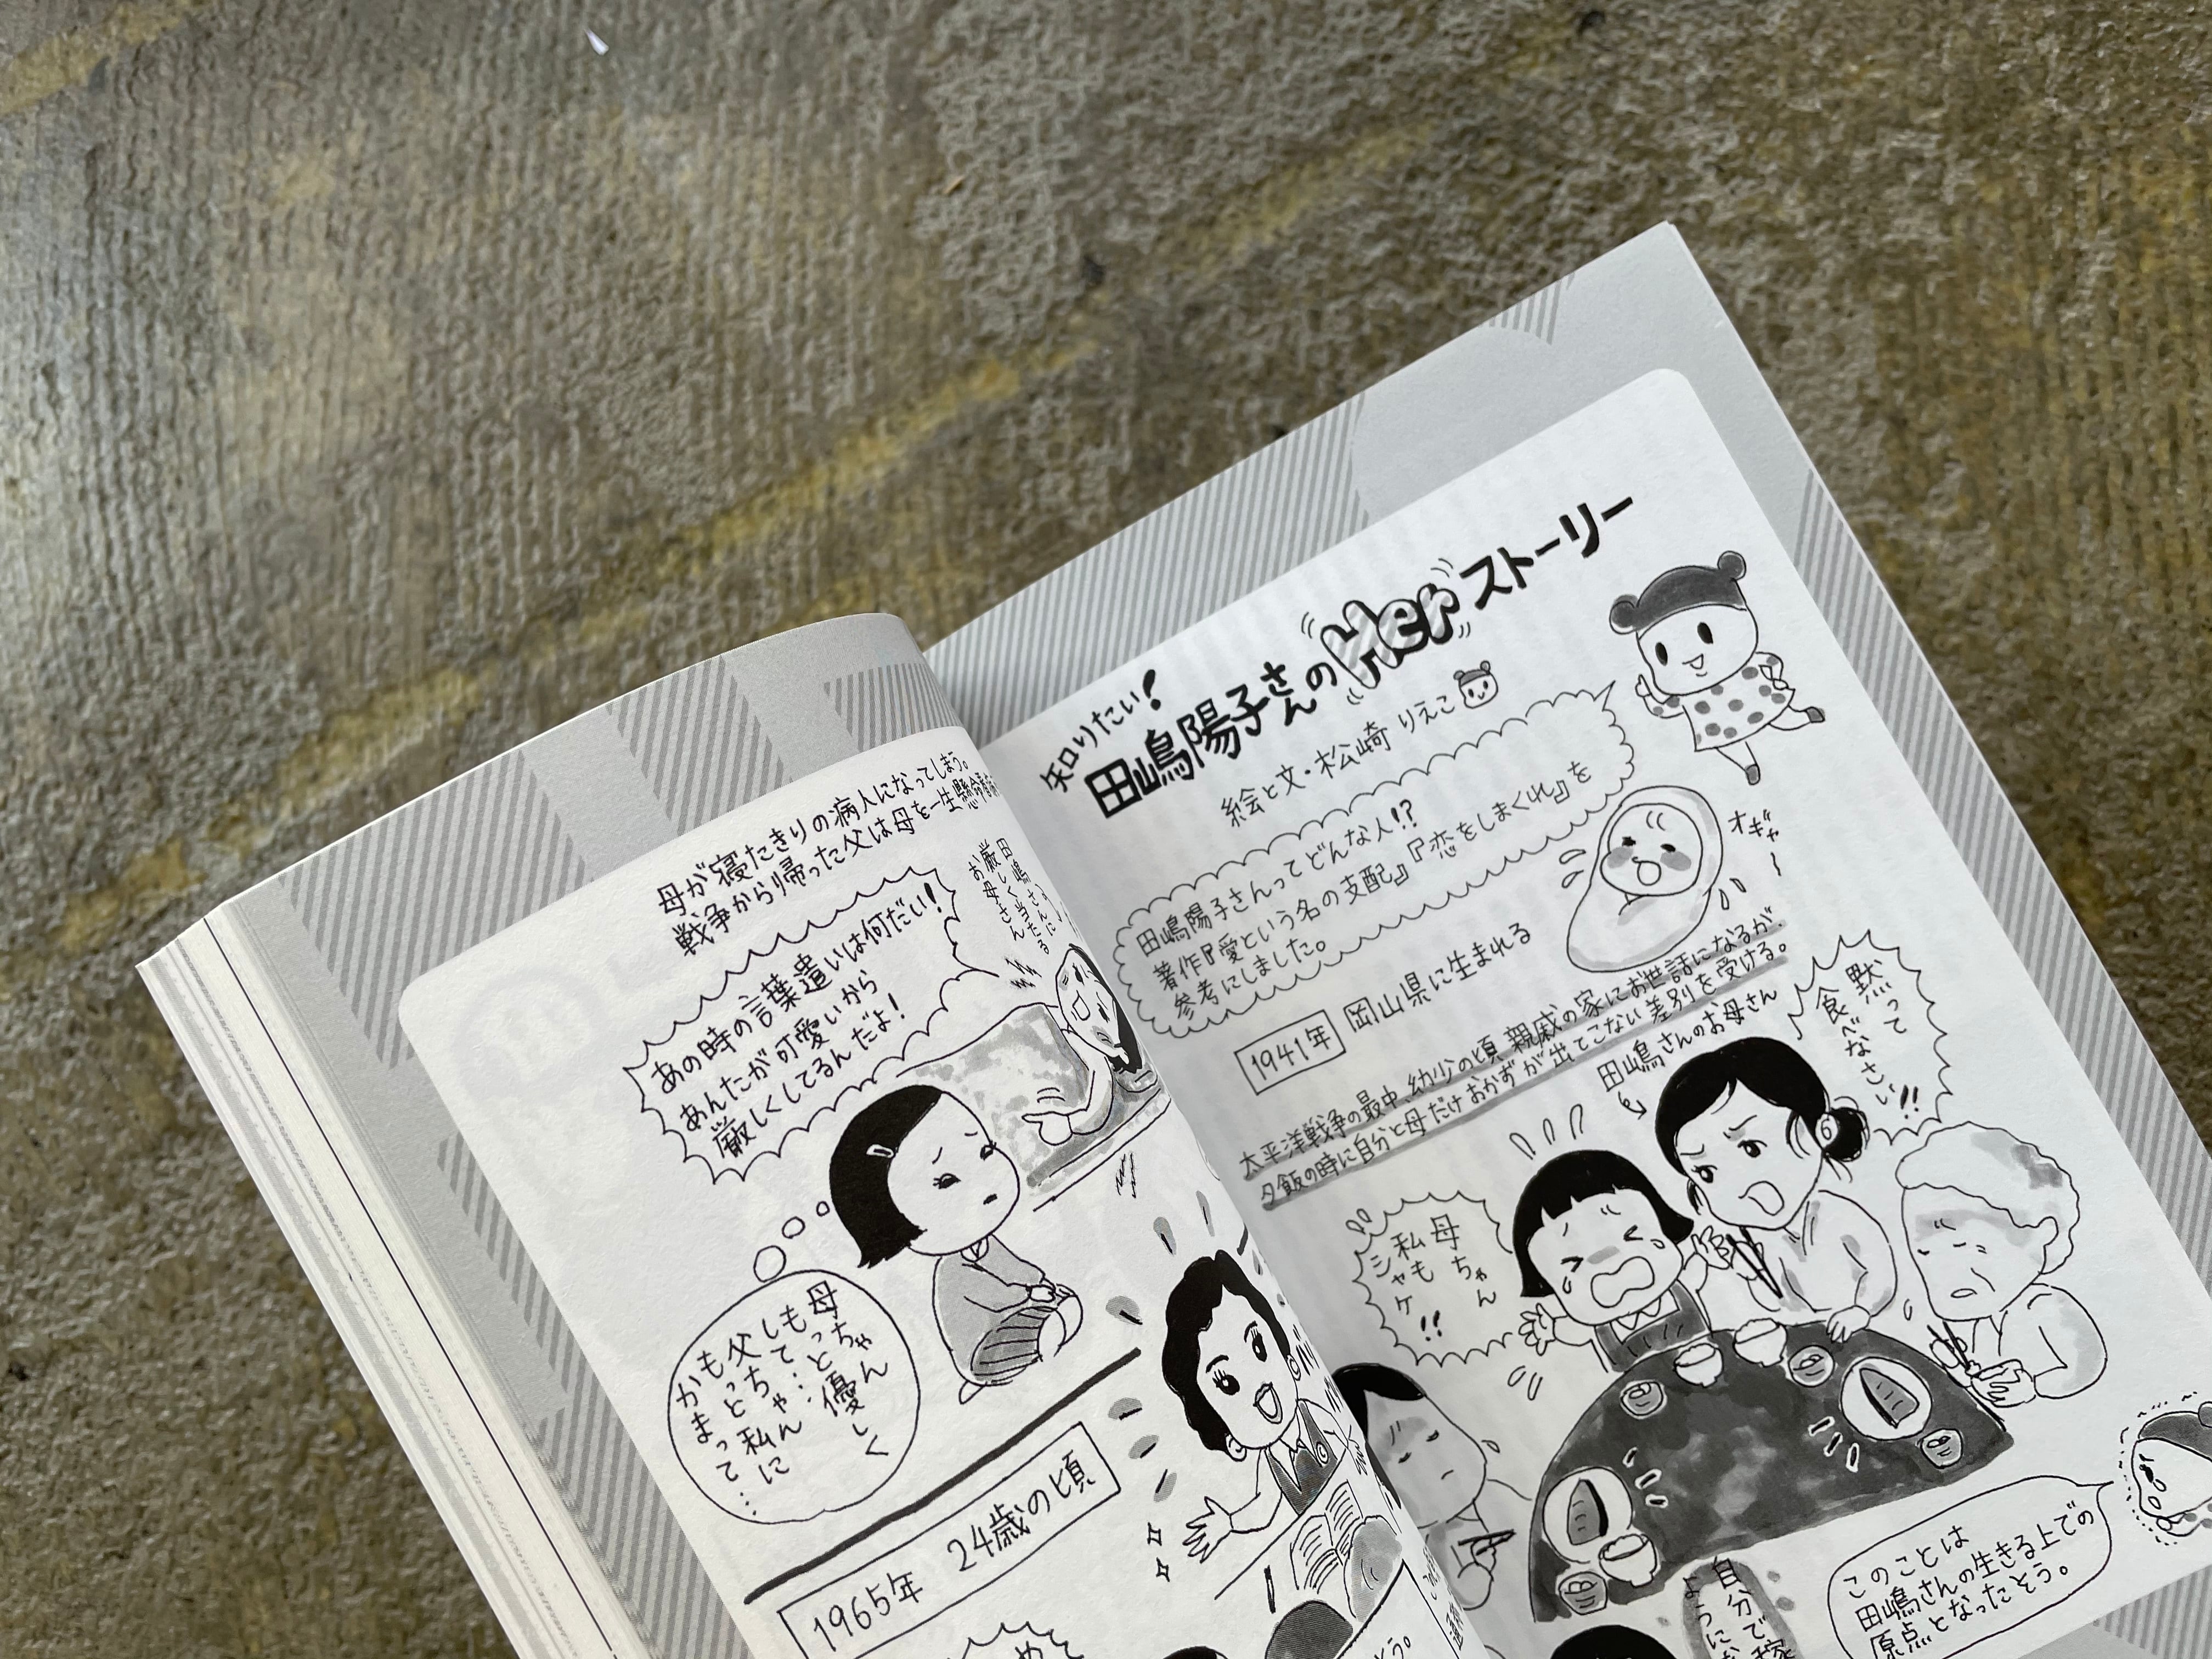 知りたい!
田嶋陽子さんのHerストーリー
絵と文・松崎りえこ
田嶋陽子さんってどんな人!?
著作『愛という名の支配』『恋をしまくれ』を
参考にしました。
オギャー
1941年 岡山県に生まれる
太平洋戦争の最中、幼少の頃親戚の家にお世話になるが、
夕飯の時に自分と母だけおかずが出てこない差別を受ける。
田嶋さんのお母さん
黙って
食べなさい!!
母ちゃん
私も
シャケ!!
このことは
田嶋さんの生きる上での
原点となったそう。
自分で
ように
母が寝たきりの病人になってしまう。
戦争から帰った父は母を一生懸命看病
田嶋さんに
厳しく当たる
お母さん
あの時の言葉遣いは何だい!
あんたが可愛いから
厳しくしてるんだよ!
母ちゃん
もっと優しく
して…
父ちゃん
もっと私に
かまって…
1965年 24歳の頃